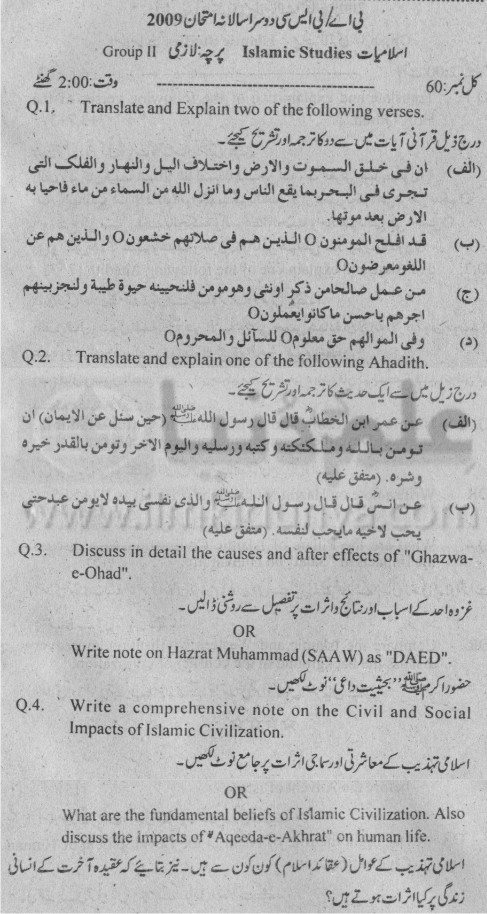 بی اے/بی ایس سی دوسرا سالانہ امتحان 2009
اسلامیات Islamic Studies پرچہ: لازمی Group II
کل نمبر: 60 وقت: 2:00 گھنٹے
Q.1. Translate and Explain two of the following verses.
درج ذیل قرآنی آیات میں سے دو کا ترجمہ اور تشریح کیجئے۔
(الف) ان فی خلق السموت والارض واختلاف الیل والنهار والفلك التی
تجری فی البحر بما يقع الناس وما انزل الله من السماء من ماء فاحيا به
الارض بعد موتها.
(ب) قد افلح المومنون O الذین هم فی صلاتهم خشعون O والذین هم عن
اللغو معرضون O
(ج) من عمل صالحا من ذکر اونثی وهو مومن فلنحیینه حیوة طیبة ولنجز بینهم
اجرهم باحسن ما کانوا یعملون O
(د) وفی الموالهم حق معلوم O للسآئل والمحروم O
Q.2. Translate and explain one of the following Ahadith.
درج زیل میں سے ایک حدیث کا ترجمہ اور تشریح کیجئے۔
(الف) عن عمر ابن الخطابؓ قال قال رسول الله ﷺ (حین سئل عن الایمان) ان
تومن بالله وملئکته و کتبه ورسلیه والیوم الاخر وتومن بالقدر خیره
وشره. (متفق علیه)
(ب) عن انسؓ قال قال رسول الله ﷺ والذی نفسی بیده لا یومن عبد حتی
یحب لاخیه مایحب لنفسه. (متفق علیه)
Q.3. Discuss in detail the causes and after effects of "Ghazwa-
e-Ohad".
غزوہ احد کے اسباب اور نتائج واثرات پر تفصیل سے روشنی ڈالیں۔
OR
Write note on Hazrat Muhammad (SAAW) as "DAED".
حضور اکرم ﷺ "بحیثیت داعی" نوٹ لکھیں۔
Q.4. Write a comprehensive note on the Civil and Social
Impacts of Islamic Civilization.
اسلامی تہذیب کے معاشرتی اور سماجی اثرات پر جامع نوٹ لکھیں۔
OR
What are the fundamental beliefs of Islamic Civilization. Also
discuss the impacts of "Aqeeda-e-Akhrat" on human life.
اسلامی تہذیب کے عوامل (عقائد اسلام) کون کون سے ہیں۔ نیز بتائیے کہ عقیدہ آخرت کے انسانی
زندگی پر کیا اثرات ہوتے ہیں؟